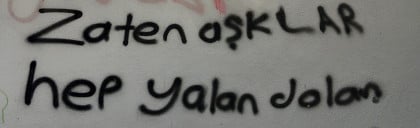 Zaten aşKLAR
hep yalan dolan